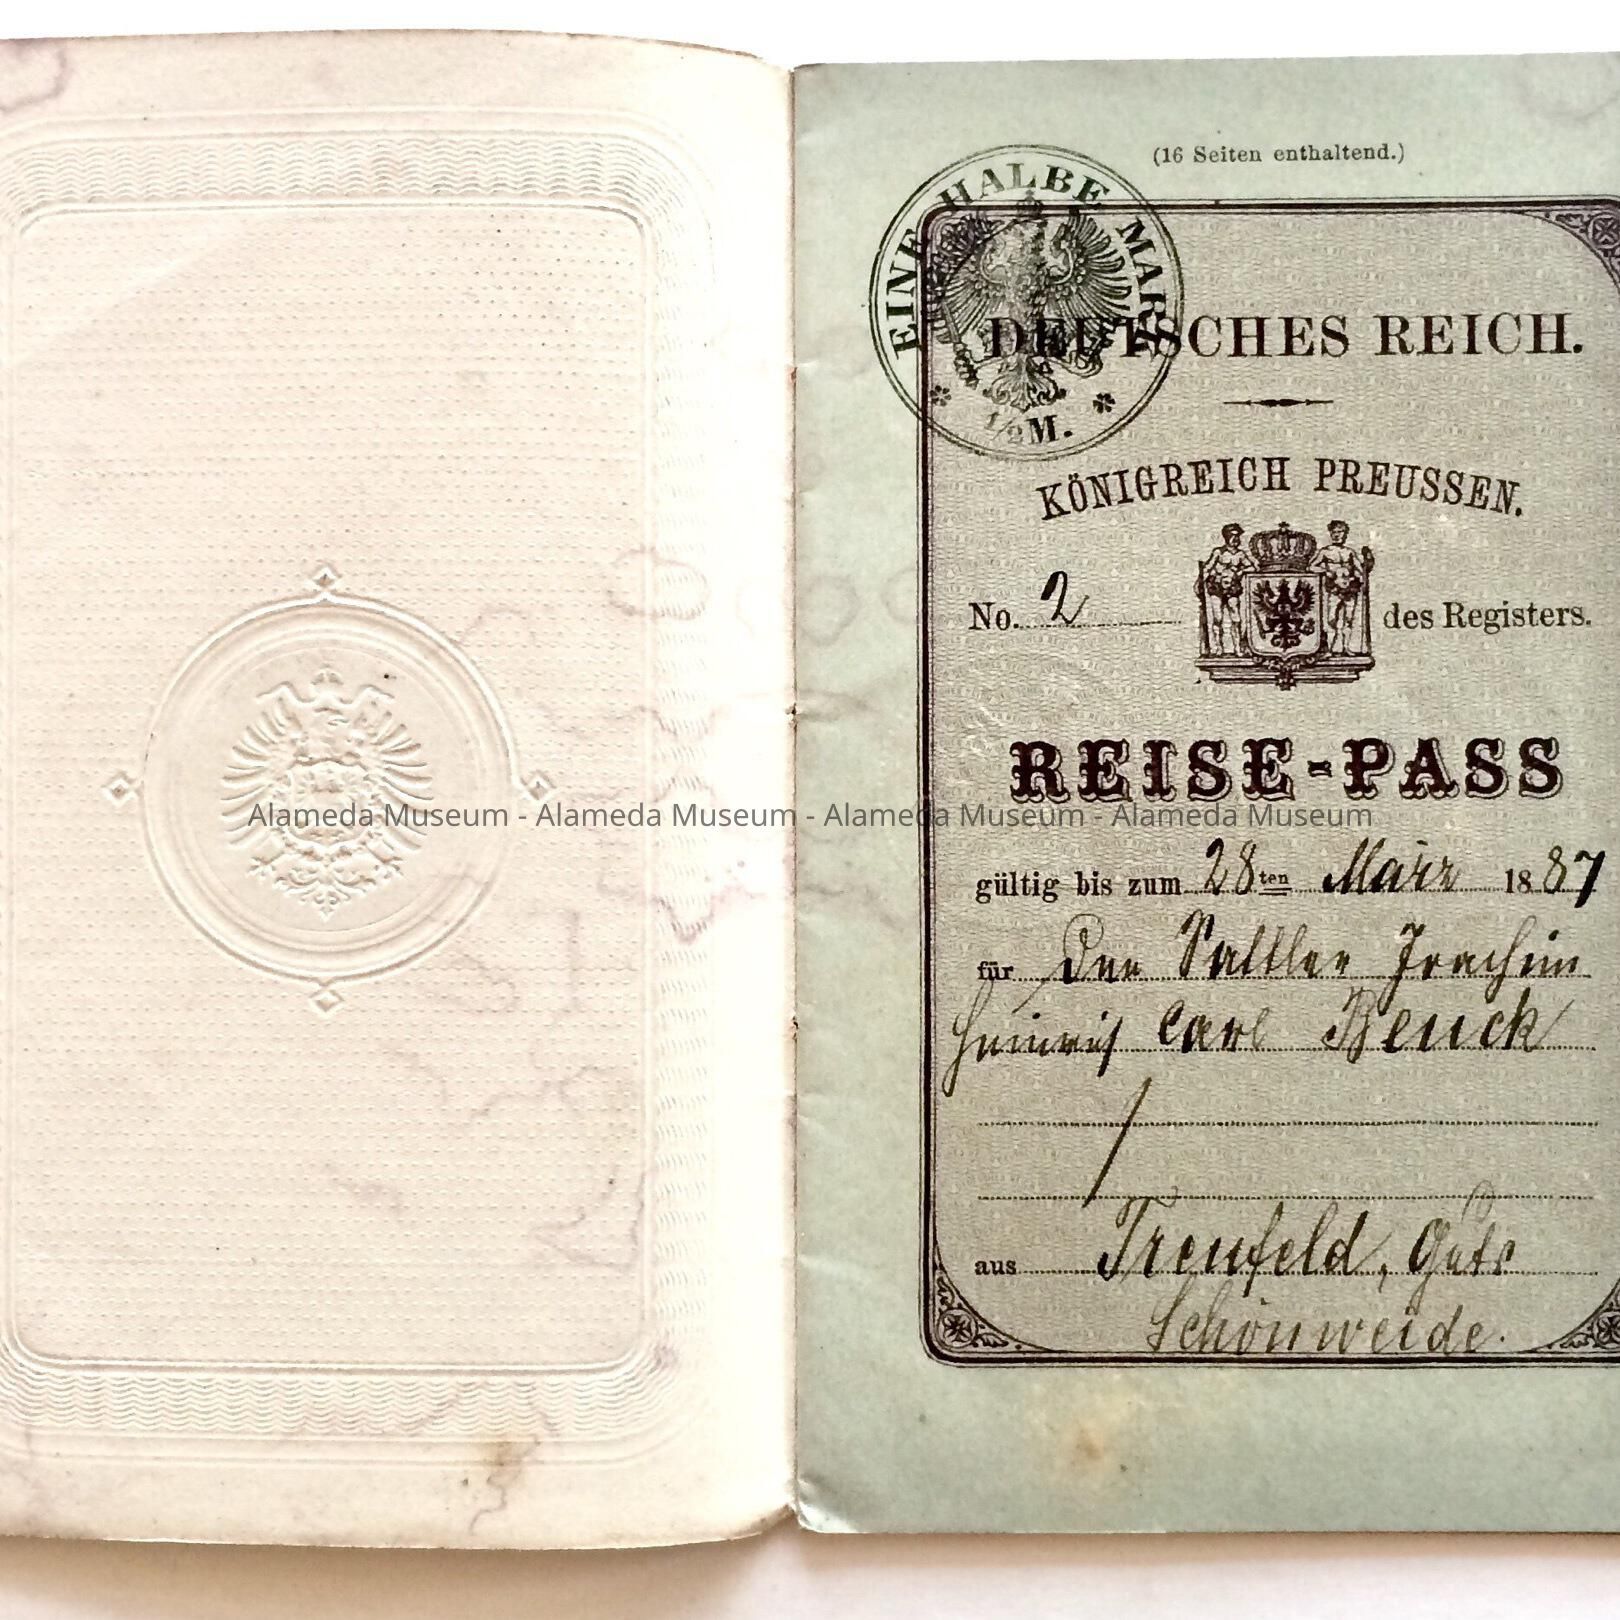 (16 Seiten enthaltend.)
EINE HALBE MARK
1/2 M.
DEUTSCHES REICH.
KÖNIGREICH PREUSSEN.
No. 2 des Registers.
REISE-PASS
Alameda Museum - Alameda Museum - Alameda Museum - Alameda Museum
gültig bis zum 28ten März 1887
für Den Sattler Joachim
Heinrich Carl Beuck
aus Treufeld, Guts
Schönweide.